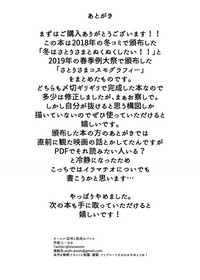 あとがき
まずはご購入ありがとうございます!!
この本は2018年の冬コミで頒布した
「冬はさとりさまとぬくぬくしたい!!」と
2019年の春季例大祭で頒布した
「さとりさまコスモグラフィー」
をまとめたものです。
どちらも〆切ギリギリで完成した本なので
多少は修正しましたが、まぁお察しで。
しかし自分が抜けると思う構図しか
描いていないのでぜひ使っていただけると
嬉しいです。
頒布した本の方のあとがきでは
直前に観た映画の話とかしてたんですが
PDFでそれ読みたい人いる?
と冷静になったため
こっちではイラマチオについてでも
書こうかと思いますが…
やっぱりやめました。
次の本も手に取っていただけると
嬉しいです!